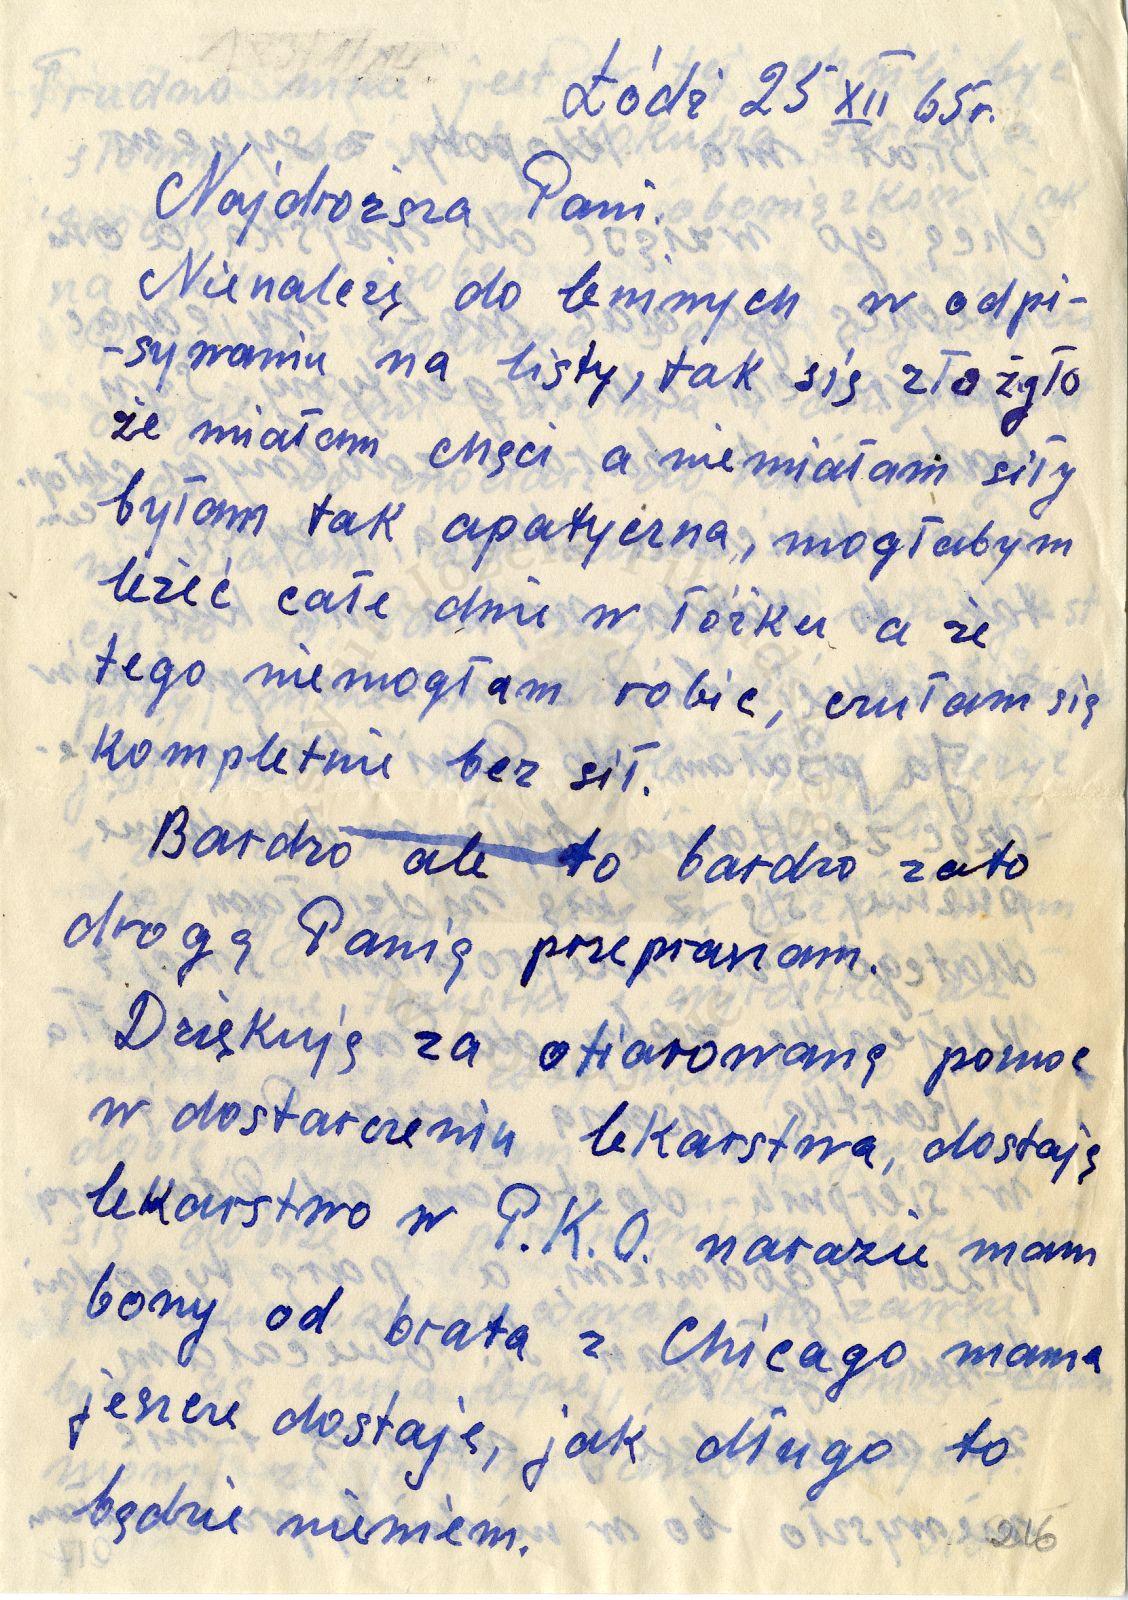 Łódź 25 XII 65r.
Najdroższa Pani.
Nienależę do leniwych w odpi-
-sywaniu na listy, tak się złożyło
że miałam chęci a niemiałam siły
byłam tak apatyczna, mogłabym
leżeć całe dnie w łóżku a że
tego niemogłam robić, czułam się
kompletnie bez sił.
Bardzo ale to bardzo zato
drogą Panią przepraszam.
Dziękuję za ofiarowaną pomoc
w dostarczeniu lekarstwa, dostaję
lekarstwo w P.K.O. narazie mam
bony od brata z Chicago mama
jeszcze dostaje, jak długo to
będzie niewiem.
216